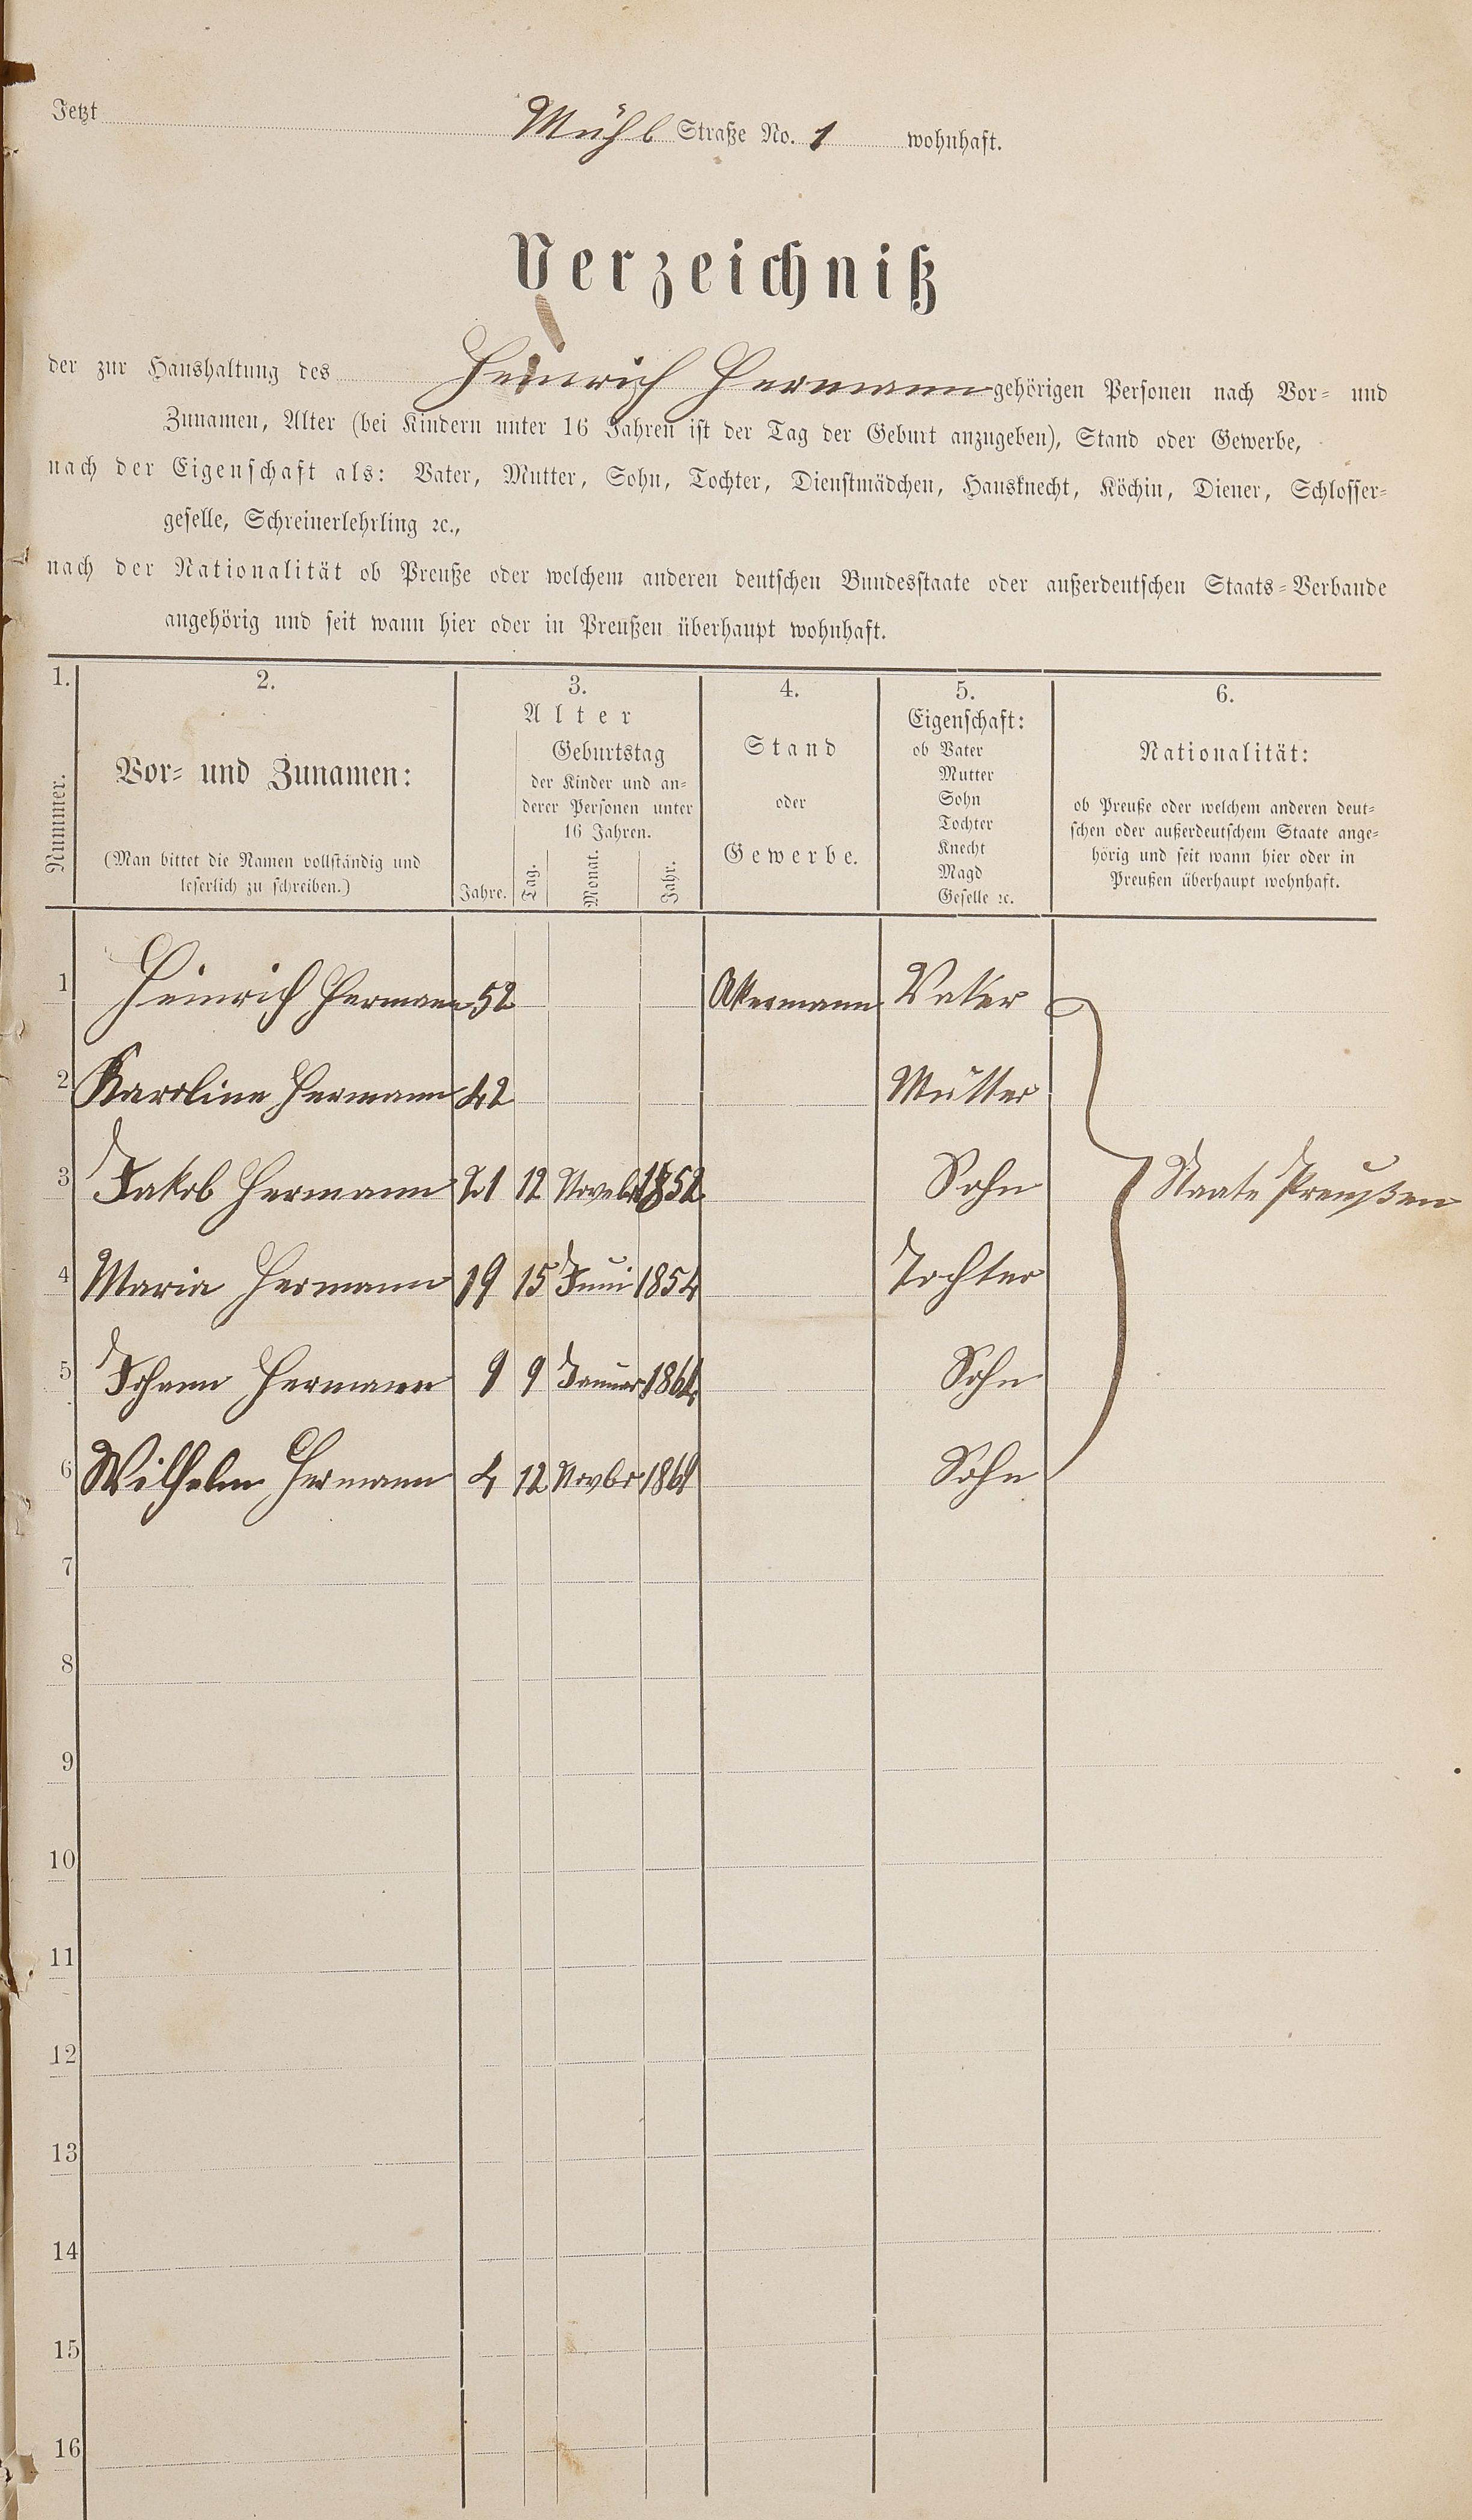 Jetzt Mühl Straße No. 1 wohnhaft.
Verzeichniß
der zur Haushaltung des Heinrich Hermann gehörigen Personen nach Vor- und
Zunamen, Alter (bei Kindern unter 16 Jahren ist der Tag der Geburt anzugeben), Stand oder Gewerbe,
nach der Eigenschaft als: Vater, Mutter, Sohn, Tochter, Dienstmädchen, Hausknecht, Köchin, Diener, Schlosser-
geselle, Schreinerlehrling ꝛc.,
nach der Nationalität ob Preuße oder welchem anderen deutschen Bundesstaate oder außerdeutschen Staats-Verbande
angehörig und seit wann hier oder in Preußen überhaupt wohnhaft.
1.
Nummer.
2.
Vor- und Zunamen:
(Man bittet die Namen vollständig und
leserlich zu schreiben.)
3.
Alter
Jahre.
Geburtstag
der Kinder und an-
derer Personen unter
16 Jahren.
Tag. Monat. Jahr.
4.
Stand
oder
Gewerbe.
5.
Eigenschaft:
ob Vater
Mutter
Sohn
Tochter
Knecht
Magd
Geselle ꝛc.
6.
Nationalität:
ob Preuße oder welchem anderen deut-
schen oder außerdeutschem Staate ange-
hörig und seit wann hier oder in
Preußen überhaupt wohnhaft.
1 Heinrich Hermann 52 Akermann Vater
2 Karoline Hermann 42 Mutter
3 Jakob Hermann 21 12 Novebr 1852 Sohn Staate Preußen
4 Maria Hermann 19 15 Juni 1854 Tochter
5 Johann Hermann 9 9 Januar 1864 Sohn
6 Wilhelm Hermann 4 12 Novbr 1869 Sohn
7
8
9
10
11
12
13
14
15
16